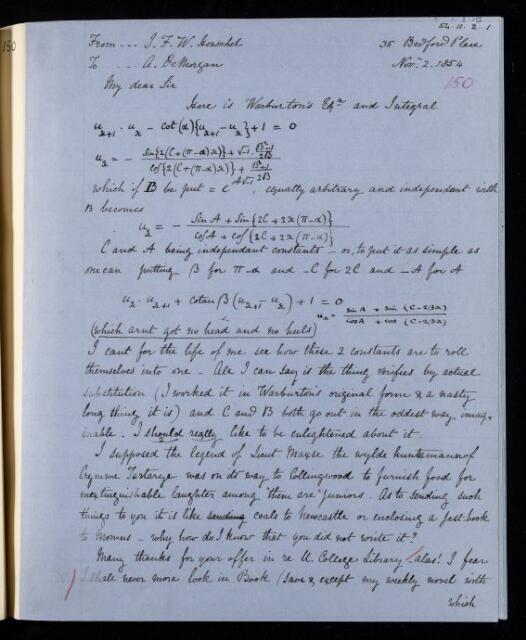 54·11·2·1
From --- J. F. W. Herschel 35 Bedford Place
To --- A. DeMorgan Novr 2. 1854
150
150
My dear Sir
Here is Warburton's Eqn and Integral
u_{x+1} · u_x − cot(α){u_{x+1} − u_x} + 1 = 0
u_x = − (sin{2(C+(π−α)x)} + √−1 · (B²−1)/2B) / (cos{2(C+(π−α)x)} + (B²+1)/2B)
which if B be put = e^{A√−1}, equally arbitrary and independent with
B becomes
u_x = − (sin A + sin{2C + 2x(π−α)}) / (cos A + cos{2C + 2x(π−α)})
C and A being independant constants — or, to put it as simple as
one can putting β for π−α and −C for 2C and −A for A
u_x · u_{x+1} + cotan β (u_{x+1} − u_x) + 1 = 0
u_x = (sin A + sin (C−2βx)) / (cos A + cos (C−2βx))
(which arnt got no head and no heels)
I cant for the life of me see how these 2 constants are to roll
themselves into one — All I can say is the thing verifies by actual
substitution (I worked it in Warburton's original form & a nasty
long thing it is) and C and B both go out in the oddest way imag-
inable. I should really like to be enlightened about it.
I supposed the legend of Lieut Mayse the wylde huntsmanne of
Crymme Tartarye was on its way to Collingwood to furnish food for
inextinguishable laughter among them are "juniors. As to sending such
things to you it is like sending coals to Newcastle or enclosing a jest-book
to Momus — why how do I know that you did not write it?
Many thanks for your offer in re U. College Library / alas! I fear
I shall never more look in Book (save & except my weekly novel with
which